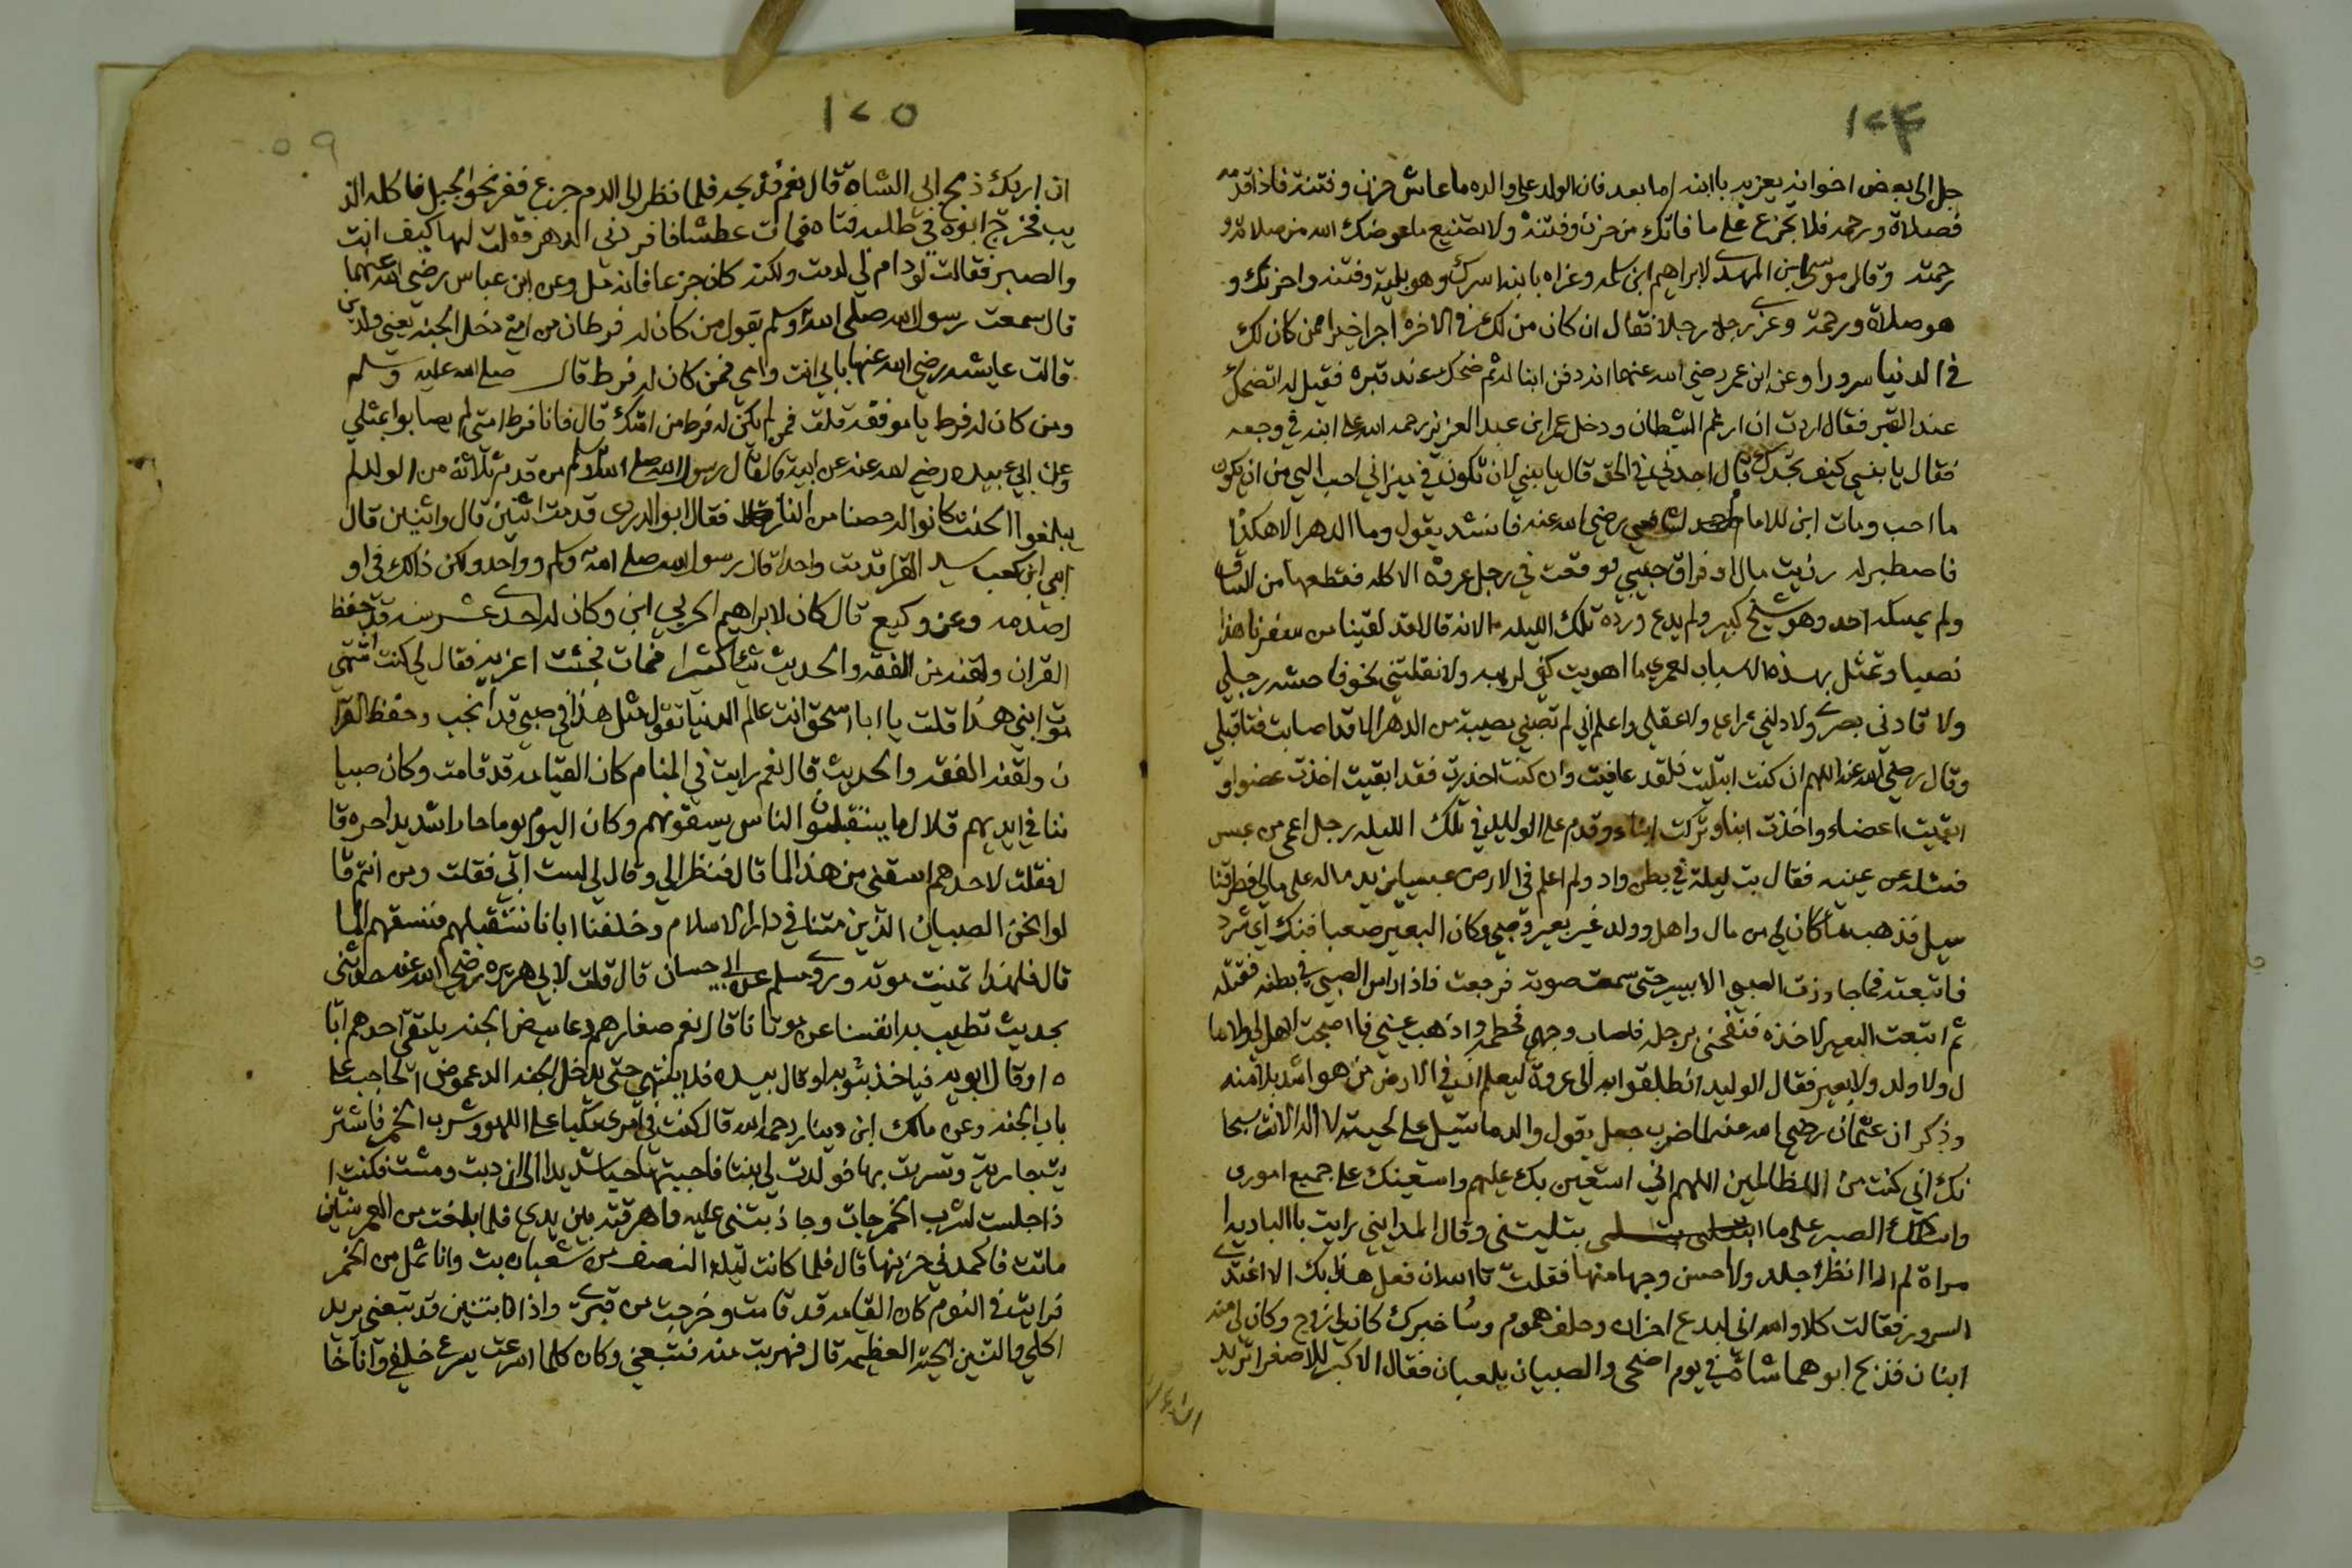 ١٧٤
جل الى بعض اخوانه يعزيه بابنه اما بعد فان الولد على والده ما عاش حزن وفتنة فاذا قدمه
فصلاة ورحمة فلا تجزع على ما فاتك من حزن وفتنة ولا تضيع ما عوضك الله من صلاته و
رحمته وقال موسى ابن المهدى لابراهيم ابن سلمه وعزاه بابنه اسرك وهو بلية وفتنه واحزنك و
هو صلاة ورحمة وعزى رجل رجلا فقال ان كان من لك في الاخره اجرا خيرا ممن كان لك
في الدنيا سرورا وعن ابن عمر رضي الله عنهما انه دفن ابنا له ثم ضحك عند قبره فقيل له اتضحك
عند القبر فقال اردت ان ارغم الشيطان ودخل عمر ابن عبد العزيز رحمه الله على ابنه في وجعه
فقال يا بني كيف تجدك قال اجدني في الحق قال يا بني لان تكون في ميزاني احب الي من ان يكون
ما احب ومات ابن للامام الشافعي رضي الله عنه فانشد يقول وما الدهر الا هكذا
فاصطبر له رزيت مال او فراق حبيب فوقعت في رجل عروة الاكله فقطعها من الساق
ولم يمسكه احد وهو شيخ كبير ولم يدع ورده تلك الليله الا انه قال لقد لقينا من سفرنا هذا
نصبا وتمثل بهذه الابيات لعمرى ما اهويت كفي لريبه ولا نقلتني نحو فاحشه رجلي
ولا قادني بصرى ولا دلني راى ولا عقلي واعلم اني لم تصبني مصيبة من الدهر الا قد اصابت فتا قبلي
وقال رضي الله عنه اللهم ان كنت ابتليت فلقد عافيت وان كنت اخذت فقد ابقيت اخذت عضوا و
ابقيت اعضاء واخذت ابنا وتركت ابناء وقدم على الوليد في تلك الليله رجل اعمى من عبس
فسئله عن عينيه فقال بت ليلة في بطن واد ولم اعلم في الارض عبسيا يزيد ماله على مالي فطرقنا
سيل فذهب ما كان لي من مال واهل وولد غير بعير وصبي وكان البعير صعبا فندّ اي شرد
فاتبعته فما جاوزت الصبي الا يسير حتى سمعت صوته فرجعت فاذا راس الصبي في بطنه فقتله
ثم اتبعت البعير لاخذه فنفحني برجله فاصاب وجهي فحطمه واذهب عيني فاصبحت لا اهل لي ولا ما
ل ولا ولد ولا بعير فقال الوليد انطلقوا به الى عروة ليعلم ان في الارض من هو اشد بلا منه
وذكر ان عثمان رضي الله عنه لما ضرب جعل يقول والدما تسيل على لحيته لا اله الا انت سبحا
نك اني كنت من الظالمين اللهم اني استعين بك عليهم واستعينك على جميع امورى
واسالك الصبر على ما بتليتني وقال المدايني رايت بالباديه ا
مراة لم ار انظر جلد ولا احسن وجها منها فقلت تالله ان فعل هذا بك الا اعتدى
السرور فقالت كلا والله اني لبدع احزان وحلف هموم وساخبرك كان لي زوج وكان لي منه
ابنان فذبح ابوهما شاة في يوم اضحى والصبيان يلعبان فقال الاكبر للاصغر اتريد
١٧٥
ان اريك ذبح ابي الشاة قال نعم فذبحه فلما نظر الى الدم جزع ففر نحو الجبل فاكله الذ
يب فخرج ابوه في طلبه فتاه فمات عطشا فافردني الدهر فقلت لها كيف انت
والصبر فقالت لو دام لي لدمت ولكنه كان جزعا فاندمل وعن ابن عباس رضي الله عنهما
قال سمعت رسول الله صلى الله وسلم يقول من كان له فرطان من امتي دخل الجنه يعني ولدين
قالت عايشه رضي الله عنها بابي انت وامي فمن كان له فرط قال صلى الله عليه وسلم
ومن كان له فرط يا موفقه قلت فمن لم يكن له فرط من امتك قال فانا فرط امتي لم يصابوا بمثلي
وعن ابي عبيده رضي الله عنه عن ابيه قال قال رسول الله صلى الله وسلم من قدم ثلاثة من الولد لم
يبلغوا الحنث كانوا له حصنا من النار فقال ابو الدردى قدمت اثنين قال واثنين قال
ابي ابن كعب سيد القرا قدمت واحدا قال رسول الله صلى الله وسلم وواحد ولكن ذالك في او
ل صدمه وعن وكيع قال كان لابراهيم الحربي ابن وكان له احدى عشر سنه قد حفظ
القران ولقنه من الفقه والحديث شيئا كثيرا فمات فجئت اعزيه فقال لي كنت اشتهي
موت ابني هذا قلت يا ابا اسحق انت عالم الدنيا تقول مثل هذا في صبي قد انجب وحفظ القرا
ن ولقنه الفقه والحديث قال نعم رايت في المنام كان القيامه قد قامت وكان صبيا
ننا في ايديهم قلال ما يستقبلون الناس يسقونهم وكان اليوم يوما حارا شديدا حره قا
ل فقلت لاحدهم اسقني من هذا الما قال فنظر الي وقال لي لست ابي فقلت ومن انتم قا
لوا نحن الصبيان الذين متنا في دار الاسلام وخلفنا ابانا نستقبلهم فنسقهم الما
قال فلهذا تمنيت موته وروى مسلم عن ابي حسان قال قلت لابي هريره رضي الله عنه حدثني
بحديث تطيب به انفسنا عن موتانا قال نعم صغارهم دعاميص الجنه يلتقى احدهم ابا
ه او قال ابويه فياخذ بثوبه او قال بيده فلا ينتهي حتى يدخل الجنه الدعموص الحاجب على
باب الجنه وعن مالك ابن دينار رحمه الله قال كنت في امرى مكبا على اللهو وشرب الخمر فاشتر
يت جارية وتسريت بها فولدت لي بنتا فاحببتها حبا شديدا الى ان دبت ومشت فكنت ا
ذا جلست لشرب الخمر جات وجاذبتني عليه فاهرقته بين يدي فلما بلغت من العمر سنتين
ماتت فاكمدني حزنها قال فلما كانت ليلة النصف من شعبان بت وانا ثمل من الخمر
فرايت في النوم كان القيامه قد قامت وخرجت من قبرى واذا بتنين قد تبعني يريد
اكلي والتنين الحيه العظيمه قال فهربت منه فتبعني وكان كلما اسرعت يسرع خلفي وانا خا